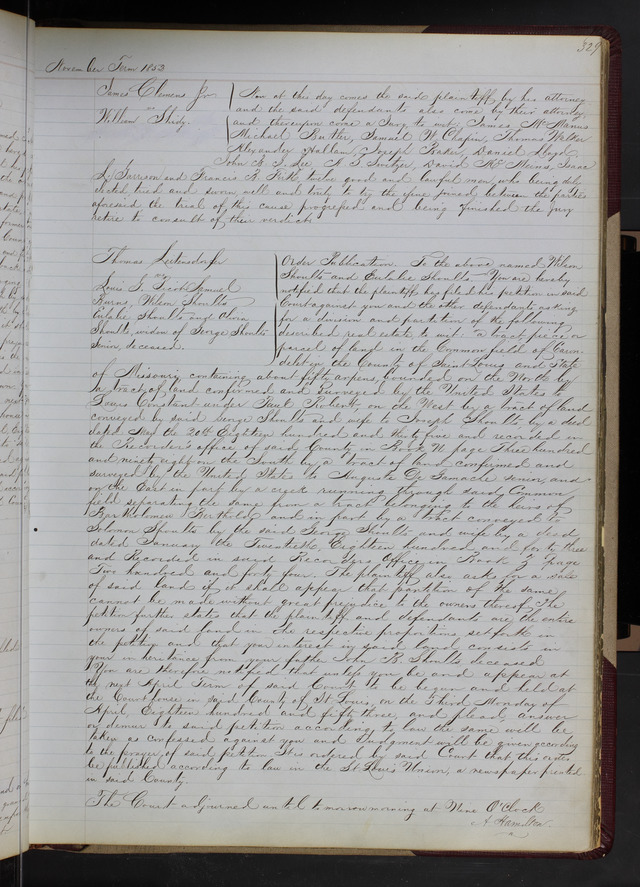 329
November Term 1853
James Clemens Jr
vs
William Shidy.
Now at this day comes the said plaintiff by his attorney
and the said defendants also come by their attorney,
and thereupon come a Jury to wit, James McManus
Michael Butler, Samuel W Chapin, Thomas Walker
Alexander Hallam, Joseph Baker, Daniel Lloyd
John B. Lee, David Isaac
L. Garrison and Francis R. twelve good and lawful men, who being duly
elected tried and sworn well and truly to try the issue joined, between the parties
aforesaid the trial of this cause progressed and being finished the jury
retire to consult of their verdict
Thomas Leitensdorfer
vs
Louis G. Picot Samuel
Burns, Wilson Shoults
Eulalie Shoults and Ahorn
Shoults, widow of George Shoults
Senior, deceased.
Order Publication. To the above named Wilson
Shoults and Eulalie Shoults. You are hereby
notified that the plaintiff has filed his petition in said
Court against you and the other defendants asking
for a division and partition of the following
described real estate, to wit: a tract, piece or
parcel of land in the Common field of Caron-
delet in the County of Saint Louis and State
of Missouri containing about fifty arpens, bounded on the North by
a tract of land confirmed and surveyed by the United States to
Louis Constant under Paul Robert, on the West by a tract of land
conveyed by said George Shoults and wife to Joseph Shoults by a deed
dated May the 20th Eighteen hundred and thirty five and recorded in
the Recorder's office of said County in Book N page Three hundred
and ninety eight on the South by a tract of land confirmed and
surveyed by the United States to Auguste De Gamache senior, and
on the East in part by a creek running through said Common
field separating the same from a tract belonging to the heirs of
Bartholomew Berthold and in part by a tract conveyed to
Solomon Shoults by the said George Shoults and wife by a deed
dated January the Twentieth, Eighteen hundred and forty three
and Recorded in said Recorders Office, in Book page
Two hundred and forty four. The plaintiff also asks for a sale
of said land if it shall appear that partition of the same
cannot be made without great prejudice to the owners thereof. The
petition further states that the plaintiff and defendants are the entire
owners of said land in the respective proportions set forth in
the petition and that your interest in said land consists in
your inheritance from your father John B. Shoults deceased
You are therefore notified that unless you be and appear at
the next April Term of said Court to be begun and held at
the Court house in said County of St Louis, on the Third Monday of
April Eighteen hundred and fifty three, and plead, answer
or demur to said petition according to law the same will be
taken as confessed against you and Judgment will be given according
to the prayer of said petition It is ordered by said Court that this order
be published according to law in the St Louis Union, a newspaper printed
in said County.
The Court adjourned until to morrow morning at Nine O'Clock
A Hamilton